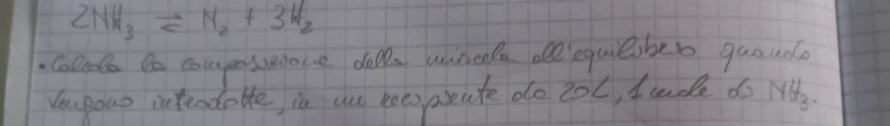 2NH₃ ⇌ N₂ + 3H₂
• Calcola la composizione della miscela all'equilibrio quando
vengono introdotte, in un recipiente da 20L, 1 mole di NH₃.